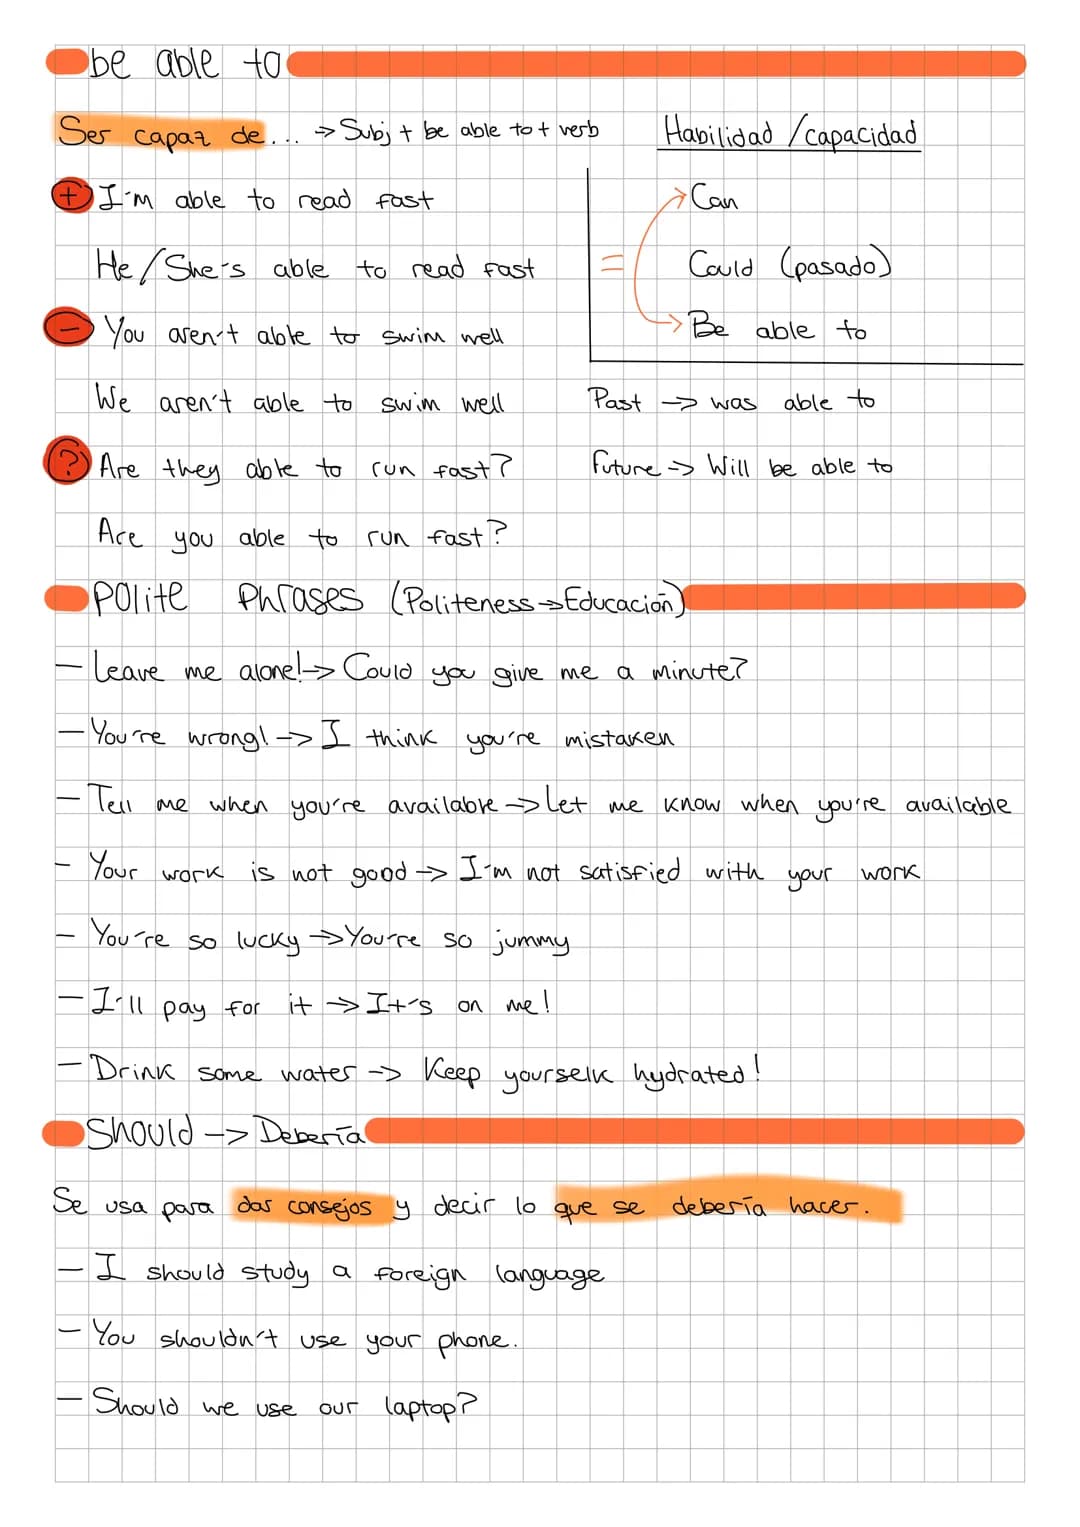 be able to
Ser capaz de... → Subj + be able to + verb
Habilidad / capacidad
+ I'm able to read fast
Can
He/She's able to read fast
= Could (pasado)
- You aren't able to swim well
Be able to
We aren't able to swim well
Past → was able to
? Are they able to run fast?
Future → Will be able to
Are you able to run fast?
Polite Phrases (Politeness → Educación)
- Leave me alone! → Could you give me a minute?
- You're wrong! → I think you're mistaken
- Tell me when you're available → Let me know when you're available
- Your work is not good → I'm not satisfied with your work
- You're so lucky → You're so jummy
- I'll pay for it → It's on me!
- Drink some water → Keep yourselk hydrated!
Should → Debería
Se usa para dar consejos y decir lo que se debería hacer.
- I should study a foreign language
- You shouldn't use your phone.
- Should we use our laptop?